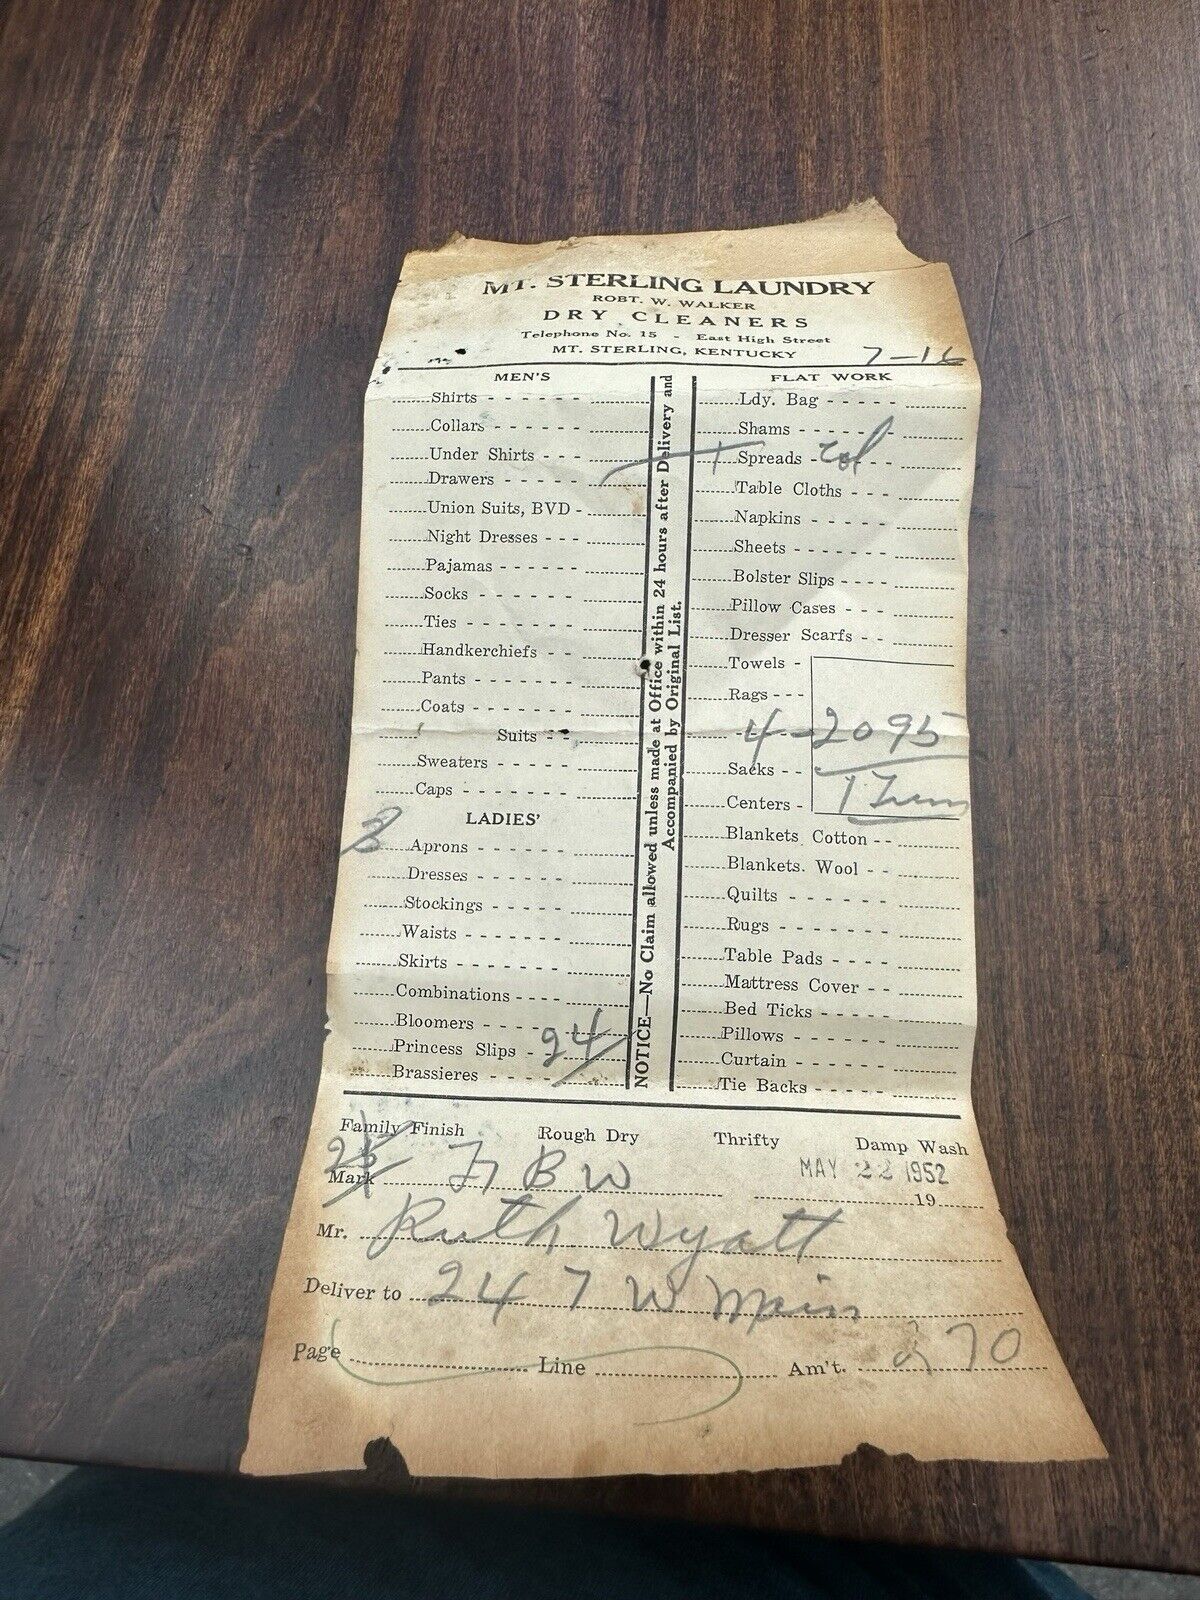 MT. STERLING LAUNDRY
ROBT. W. WALKER
DRY CLEANERS
Telephone No. 15 - East High Street
MT. STERLING, KENTUCKY
7-16
MEN'S
Shirts
Collars
Under Shirts
Drawers
Union Suits, BVD
Night Dresses
Pajamas
Socks
Ties
Handkerchiefs
Pants
Coats
Suits
Sweaters
Caps
LADIES'
3 Aprons
Dresses
Stockings
Waists
Skirts
Combinations
Bloomers
Princess Slips - 24
Brassieres
NOTICE—No Claim allowed unless made at Office within 24 hours after Delivery and
Accompanied by Original List.
FLAT WORK
Ldy. Bag
Shams
1 Spreads
Table Cloths
Napkins
Sheets
Bolster Slips
Pillow Cases
Dresser Scarfs
Towels
Rags
4-2095
Sacks
Centers
Blankets Cotton
Blankets. Wool
Quilts
Rugs
Table Pads
Mattress Cover
Bed Ticks
Pillows
Curtain
Tie Backs
Family Finish Rough Dry Thrifty Damp Wash
Mark B W MAY 22 1952
19
Mr. Ruth Wyatt
Deliver to 247 W Main
Page Line Am't. 2 70